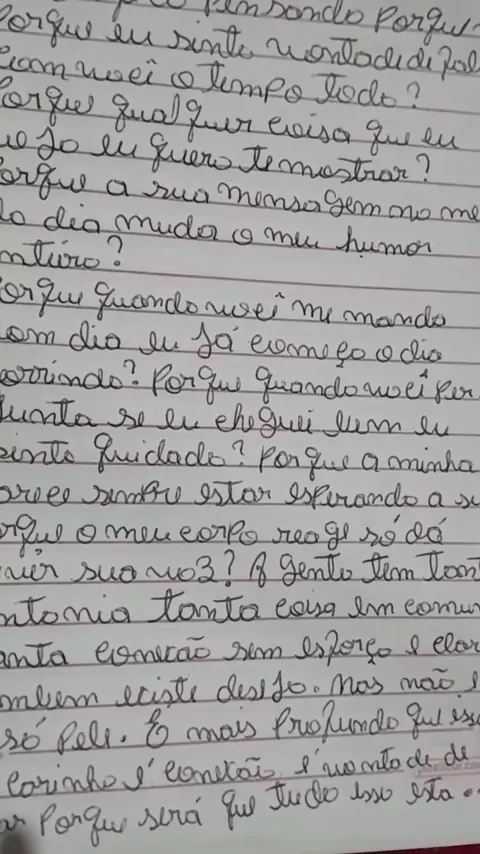 pensando porqu
Porque eu sinto vontade de fal
com você o tempo todo?
Porque qualquer coisa que eu
vejo eu quero te mostrar?
Porque a sua mensagem no me
do dia muda o meu humor
nteiro?
Porque quando você me manda
bom dia eu já começo o dia
sorrindo? Porque quando você per
gunta se eu cheguei bem eu
sinto cuidado? Porque a minha
parece sempre estar esperando a su
orque o meu corpo reage só dá
ouvir sua voz? A gente tem tan
intonia tanta coisa em comu
anta conecão sem esforço e clar
mbem existe desejo. Mas não
só pele. É mais profundo que iss
carinho é conecão é vontade de
ar porque será que tudo isso esta